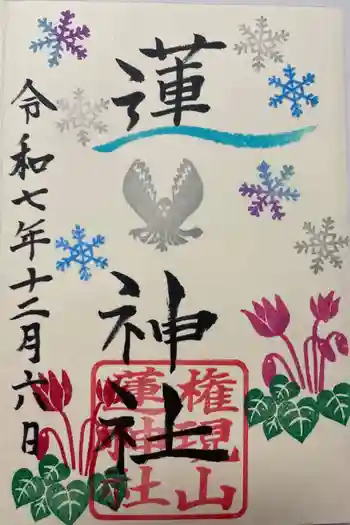 蓮
神社
令和七年十二月六日
権現山
蓮神社